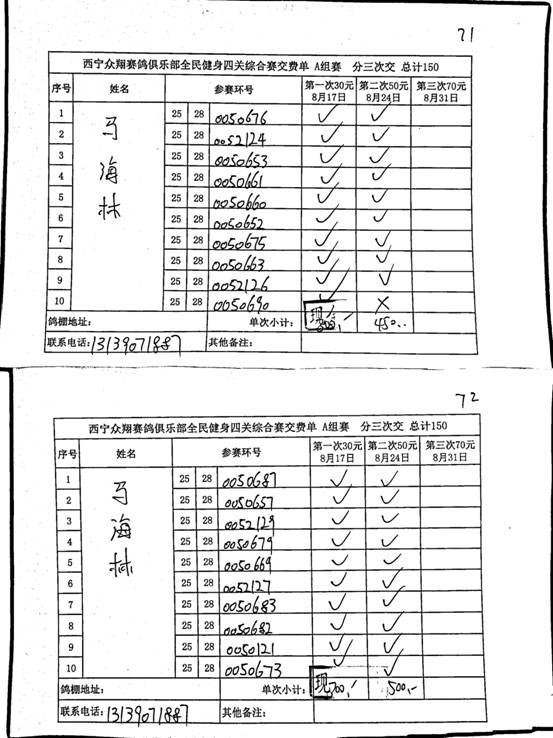 71
西宁众翔赛鸽俱乐部全民健身四关综合赛交费单 A组赛 分三次交 总计150
序号 姓名 参赛环号 第一次30元 8月17日 第二次50元 8月24日 第三次70元 8月31日
马海林
1 25 28 0050676 ✓ ✓
2 25 28 0052124 ✓ ✓
3 25 28 0050653 ✓ ✓
4 25 28 0050661 ✓ ✓
5 25 28 0050660 ✓ ✓
6 25 28 0050652 ✓ ✓
7 25 28 0050675 ✓ ✓
8 25 28 0050663 ✓ ✓
9 25 28 0052126 ✓ ✓
10 25 28 0050690 ✓ ×
鸽棚地址: 单次小计: 现 450..
联系电话:13139071887 其他备注:
72
西宁众翔赛鸽俱乐部全民健身四关综合赛交费单 A组赛 分三次交 总计150
序号 姓名 参赛环号 第一次30元 8月17日 第二次50元 8月24日 第三次70元 8月31日
马海林
1 25 28 0050687 ✓ ✓
2 25 28 0050657 ✓ ✓
3 25 28 0052129 ✓ ✓
4 25 28 0050679 ✓ ✓
5 25 28 0050669 ✓ ✓
6 25 28 0052127 ✓ ✓
7 25 28 0050683 ✓ ✓
8 25 28 0050682 ✓ ✓
9 25 28 0050121 ✓ ✓
10 25 28 0050673 ✓ ✓
鸽棚地址: 单次小计: 现 500,-
联系电话:13139071887 其他备注: